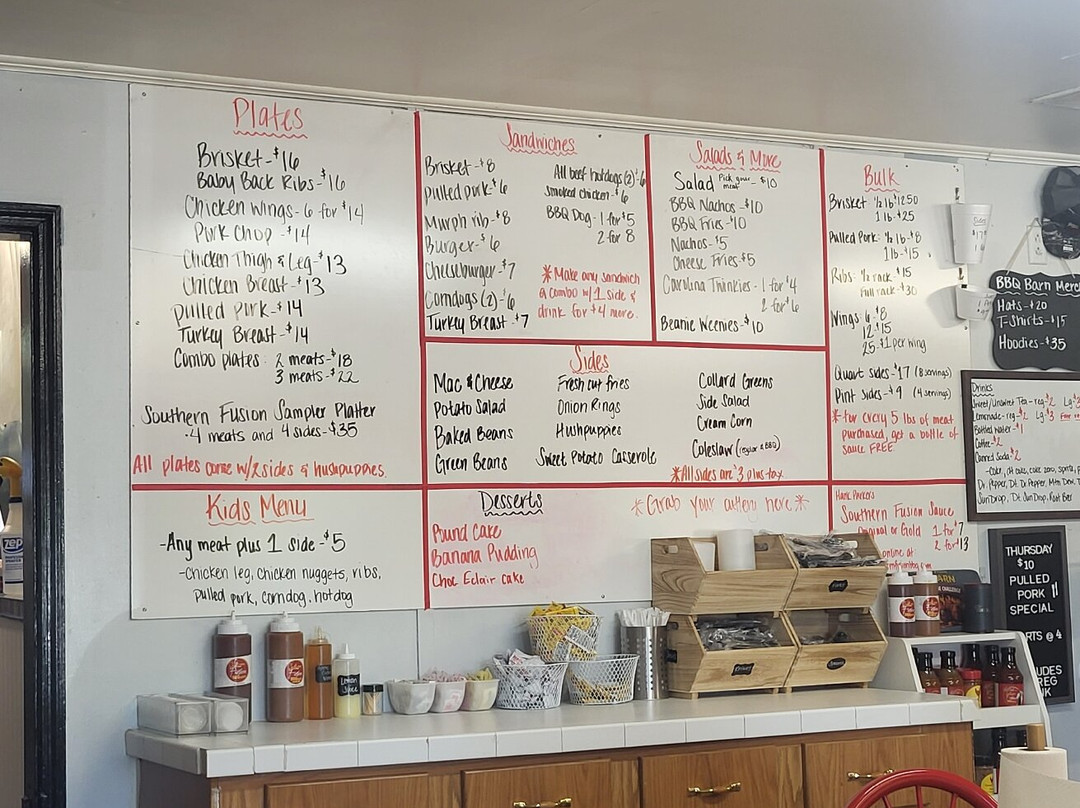 Plates
Brisket-$16
Baby Back Ribs-$16
Chicken Wings-6 for $14
Pork Chop -$14
Chicken Thigh & Leg-$13
Chicken Breast-$13
Pulled Pork-$14
Turkey Breast-$14
Combo plates- 2 meats-$18
3 meats-$22
Southern Fusion Sampler Platter
-4 meats and 4 sides-$35
All plates come w/2 sides & hushpuppies.
Sandwiches
Brisket-$8
Pulled pork-$6
Murph rib-$8
Burger-$6
Cheeseburger-$7
Corndogs (2)-$6
Turkey Breast-$7
All beef hotdogs (2)-$6
Smoked chicken-$6
BBQ Dog-1 for $5
2 for 8
*Make any sandwich
a combo w/1 side &
drink for $4 more.
Salads & More
Salad Pick your meat -$10
BBQ Nachos-$10
BBQ Fries-$10
Nachos-$5
Cheese Fries-$5
Carolina Twinkies-1 for $4
2 for $6
Beanie Weenies-$10
Bulk
Brisket- ½ lb $12.50
1 lb-$25
Pulled Pork- ½ lb-$8
1 lb-$15
Ribs- ½ rack-$15
full rack-$30
Wings-6-$8
12-$15
25-$1 per wing
Quart sides-$17 (8 servings)
Pint sides-$9 (4 servings)
*For every 5 lbs of meat
purchased, get a bottle of
sauce FREE.
Sides
Mac & Cheese
Potato Salad
Baked Beans
Green Beans
Fresh cut fries
Onion Rings
Hushpuppies
Sweet Potato Casserole
Collard Greens
Side Salad
Cream Corn
Coleslaw (regular & BBQ)
*All sides are $3 plus tax
Kids Menu
-Any meat plus 1 side-$5
-chicken leg, chicken nuggets, ribs,
pulled pork, corndog, hotdog
Desserts
Pound Cake
Banana Pudding
Choc Eclair cake
*Grab your cutlery here*
Hank Parker's
Southern Fusion Sauce
Original or Gold 1 for $7
2 for $13
online at
BBQ Barn Merch
Hats-$20
T-Shirts-$15
Hoodies-$35
Drinks
Sweet/Unsweet Tea-reg-$2
Lemonade-reg-$2 Lg-$3
Bottled Water-$1
Coffee-$2
Canned Soda-$2
Dr. Pepper, Dt Dr Pepper, Mtn Dew,
Sun Drop, Dt Sun Drop, Root Beer
THURSDAY
$10
PULLED
PORK
SPECIAL
@ 4
Lemon
Juice
ZEP